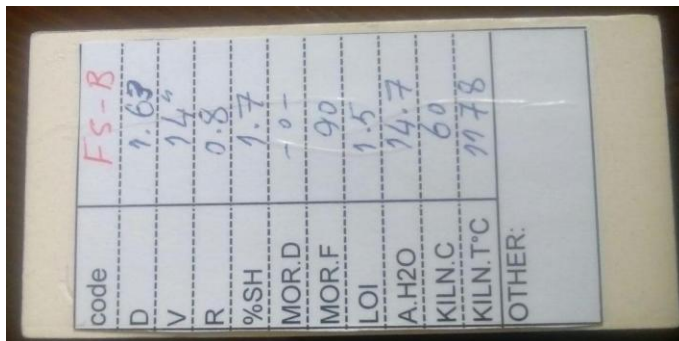 code FS-B
D 1.63
V 14"
R 0.8
%SH 1.7
MOR.D -0-
MOR.F 90
LOI 1.5
A.H2O 14.7
KILN.C 60
KILN.T°C 1178
OTHER: